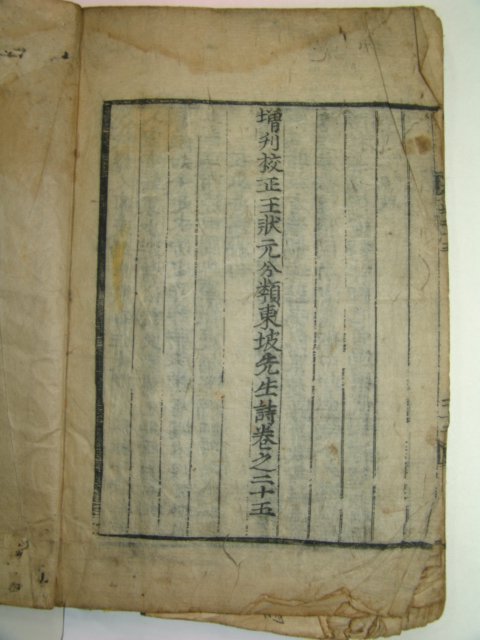 增刋校正王狀元分類東坡先生詩卷之二十五